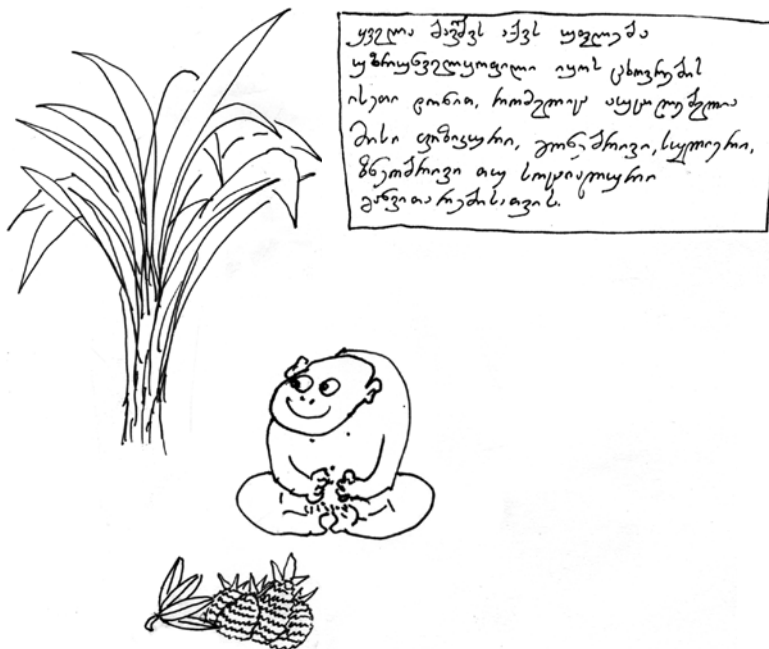 ყველა ბავშვს აქვს უფლება
უზრუნველყოფილი იყოს ცხოვრების
ისეთი დონით, რომელიც აუცილებელია
მისი ფიზიკური, გონებრივი, სულიერი,
ზნეობრივი თუ სოციალური
განვითარებისათვის.